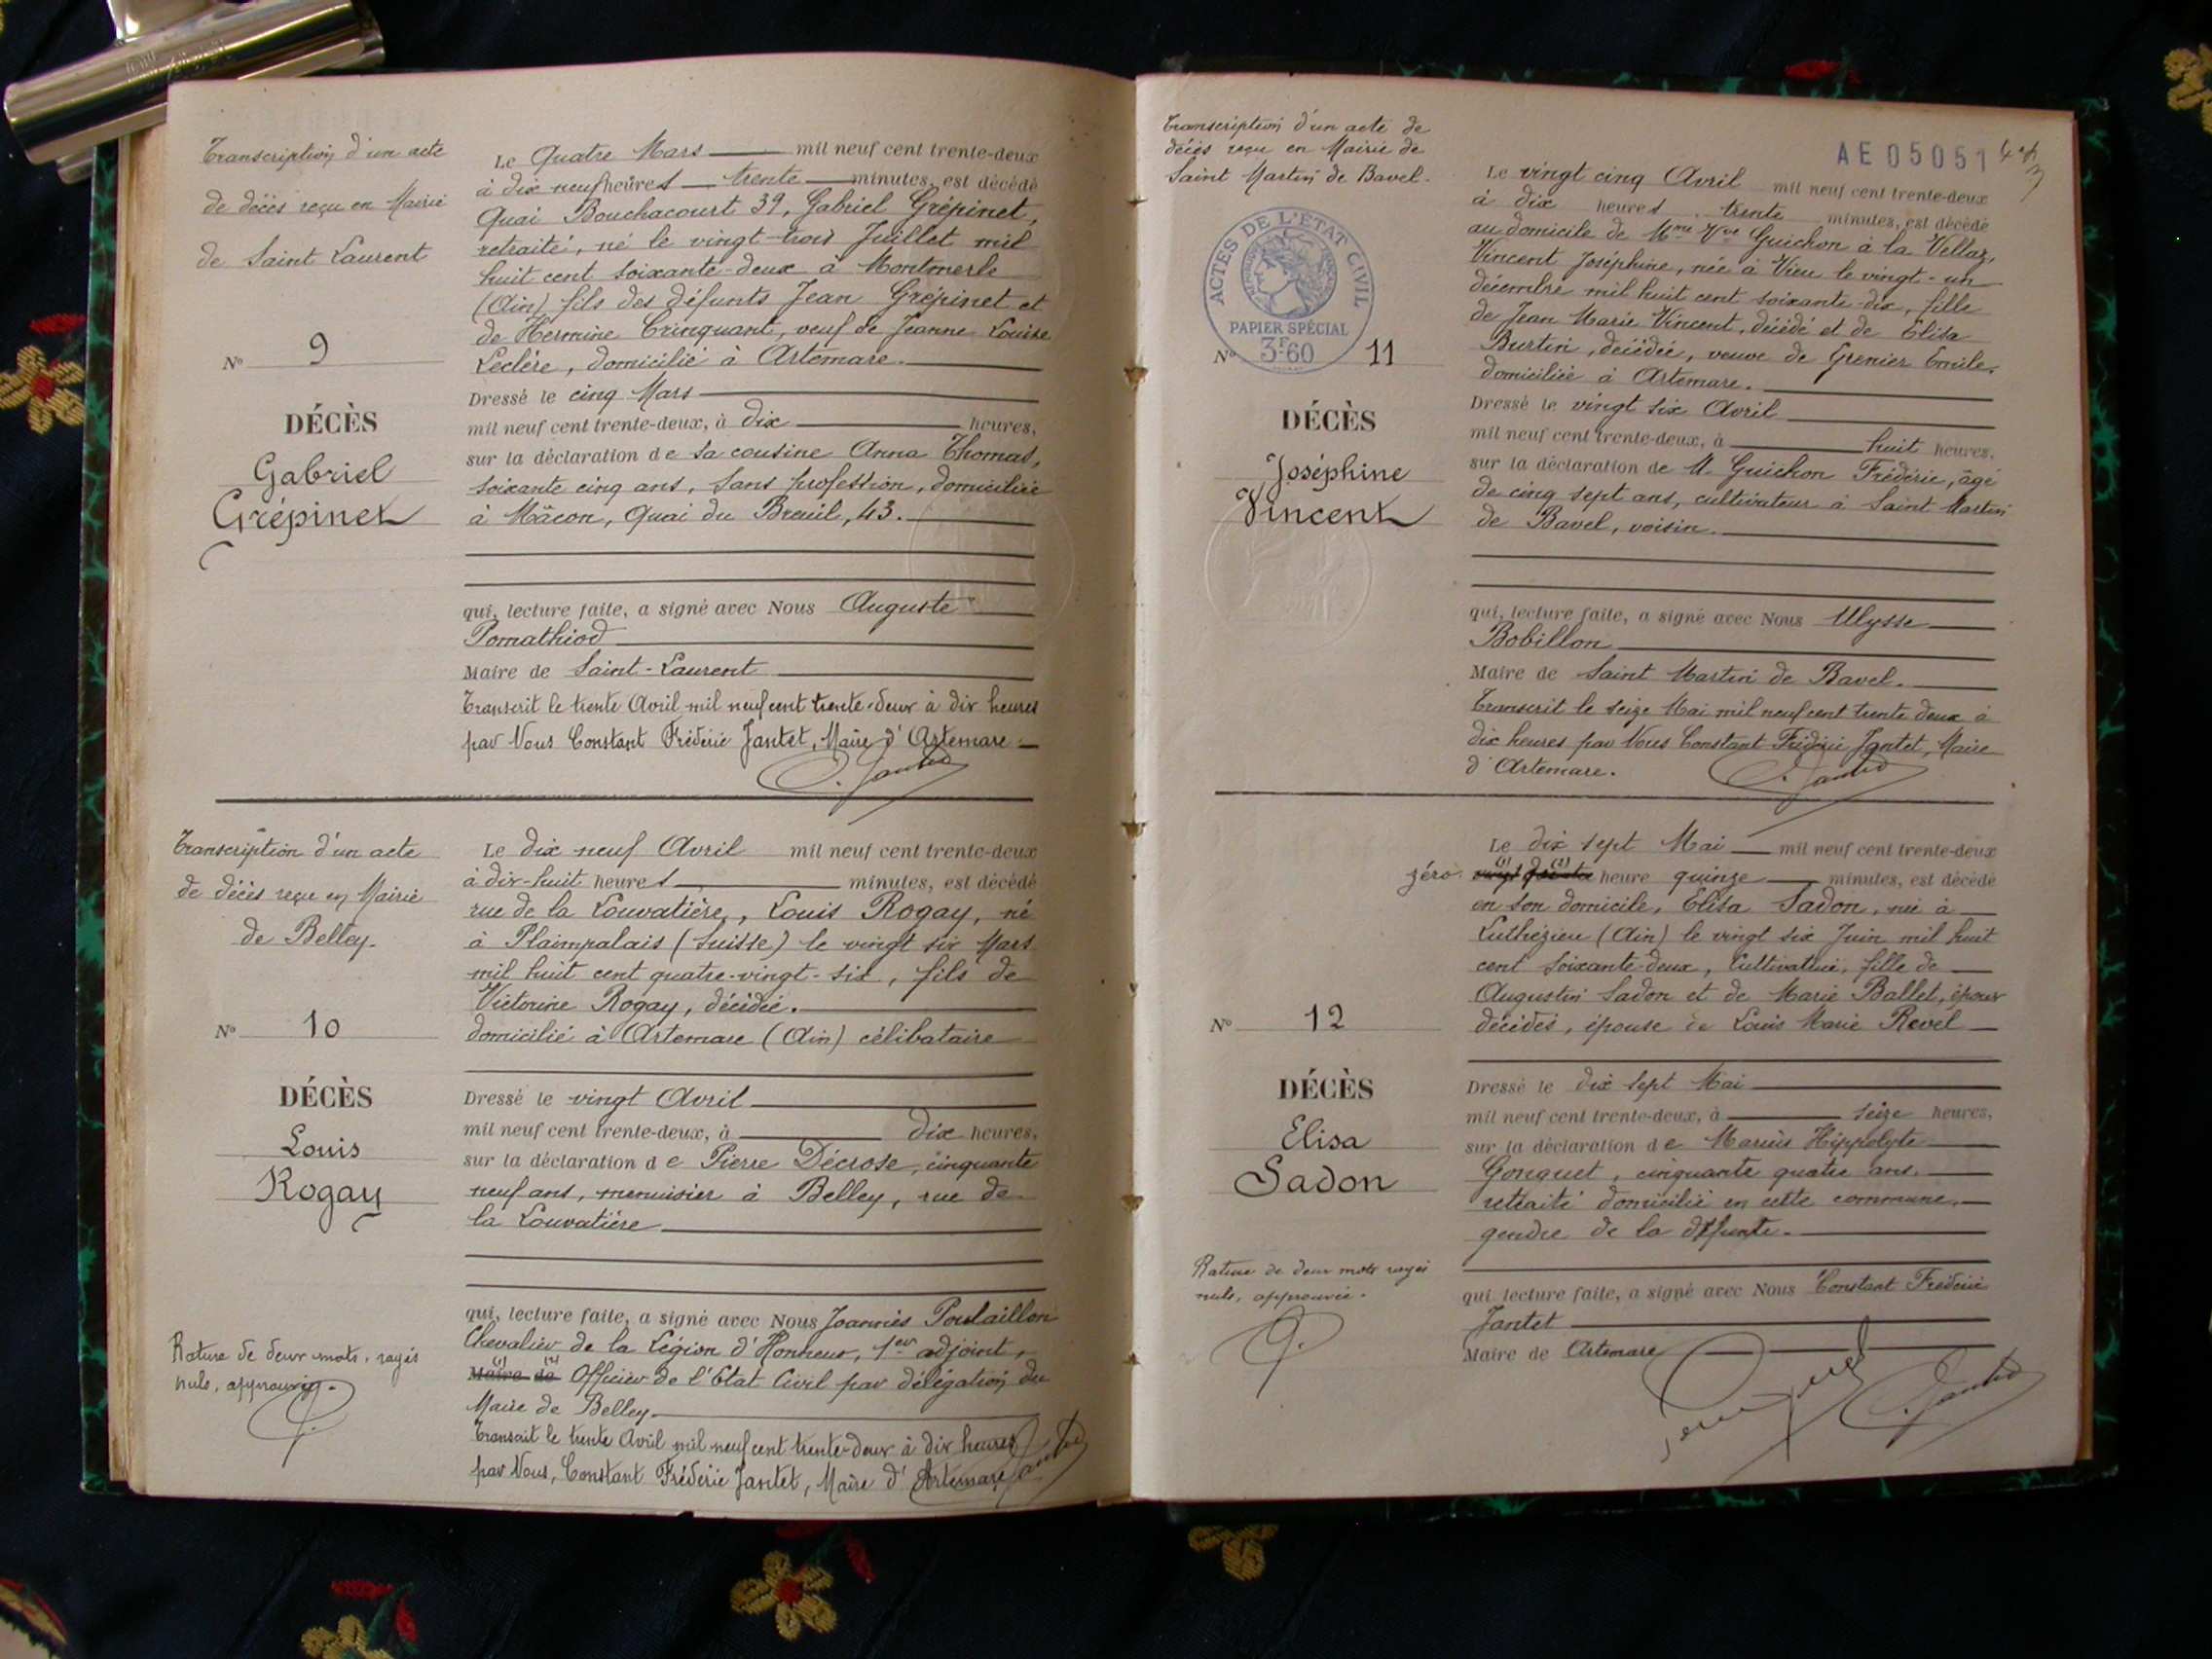 Transcription d'un acte
de décès reçu en Mairie
de Saint Laurent
N° 9
DÉCÈS
Gabriel
Grépinet
Le Quatre Mars mil neuf cent trente-deux
à dix neuf heures trente minutes, est décédé
Quai Bouchacourt 39, Gabriel Grépinet,
retraité, né le vingt-trois Juillet mil
huit cent soixante-deux à Montmerle
(Ain), fils des défunts Jean Grépinet et
de Hermine Crinquant, veuf de Jeanne Louise
Leclère, domicilié à Artemare.
Dressé le cinq Mars
mil neuf cent trente-deux, à dix heures,
sur la déclaration de sa cousine Anna Thomas,
soixante cinq ans, sans profession, domiciliée
à Mâcon, Quai du Breuil, 43.
qui, lecture faite, a signé avec Nous Auguste
Pomathiod
Maire de Saint-Laurent
Transcrit le trente Avril mil neuf cent trente-deux à dix heures
par Nous Constant Fréderic Jantet, Maire d'Artemare
C. Jantet
Transcription d'un acte
de décès reçu en Mairie
de Belley.
N° 10
DÉCÈS
Louis
Rogay
Rature de deux mots, rayés
nuls, approuvée.
Le dix neuf Avril mil neuf cent trente-deux
à dix-huit heures minutes, est décédé
rue de la Louvatière, Louis Rogay, né
à Plaimpalais (Suisse) le vingt six Mars
mil huit cent quatre-vingt-six, fils de
Victorine Rogay, décédée.
domicilié à Artemare (Ain) célibataire
Dressé le vingt Avril
mil neuf cent trente-deux, à dix heures,
sur la déclaration de Pierre Décrose, cinquante
neuf ans, menuisier à Belley, rue de
la Louvatière
qui, lecture faite, a signé avec Nous Joannès Poulaillon
Chevalier de la Légion d'Honneur, 1er adjoint,
Maire de Officier de l'Etat Civil par délégation du
Maire de Belley
Transcrit le trente Avril mil neuf cent trente-deux à dix heures
par Nous, Constant Fréderic Jantet, Maire d'Artemare
Transcription d'un acte de
décès reçu en Mairie de
Saint Martin de Bavel.
ACTES DE L'ETAT CIVIL
PAPIER SPÉCIAL
3F60
N° 11
DÉCÈS
Joséphine
Vincent
AE 05051
Le vingt cinq Avril mil neuf cent trente-deux
à dix heures trente minutes, est décédé
au domicile de Mme Vve Guichon à la Vellaz,
Vincent Joséphine, née à Vieu le vingt-un
décembre mil huit cent soixante-dix, fille
de Jean Marie Vincent, décédé et de Elisa
Burtin, décédée, veuve de Grenier Emile.
domiciliée à Artemare.
Dressé le vingt six Avril
mil neuf cent trente-deux, à huit heures,
sur la déclaration de M. Guichon Frédéric, âgé
de cinq sept ans, cultivateur à Saint Martin
de Bavel, voisin.
qui, lecture faite, a signé avec Nous Ulysse
Bobillon
Maire de Saint Martin de Bavel.
Transcrit le seize Mai mil neuf cent trente deux à
dix heures par Nous Constant Frédéric Jantet, Maire
d'Artemare.
C. Jantet
N° 12
DÉCÈS
Elisa
Sadon
Rature de deux mots rayés
nuls, approuvée.
Le dix sept Mai mil neuf cent trente-deux
zéro heure quinze minutes, est décédé
en son domicile, Elisa Sadon, née à
Luthézieu (Ain) le vingt six Juin mil huit
cent soixante-deux, Cultivatrice, fille de
Augustin Sadon et de Marie Ballet, époux
décédés, épouse de Louis Marie Revel
Dressé le dix sept Mai
mil neuf cent trente-deux, à seize heures,
sur la déclaration de Marius Hippolyte
Gonguet, cinquante quatre ans,
retraité domicilié en cette commune,
gendre de la défunte.
qui lecture faite, a signé avec Nous Constant Fréderic
Jantet
Maire de Artemare
C. Jantet